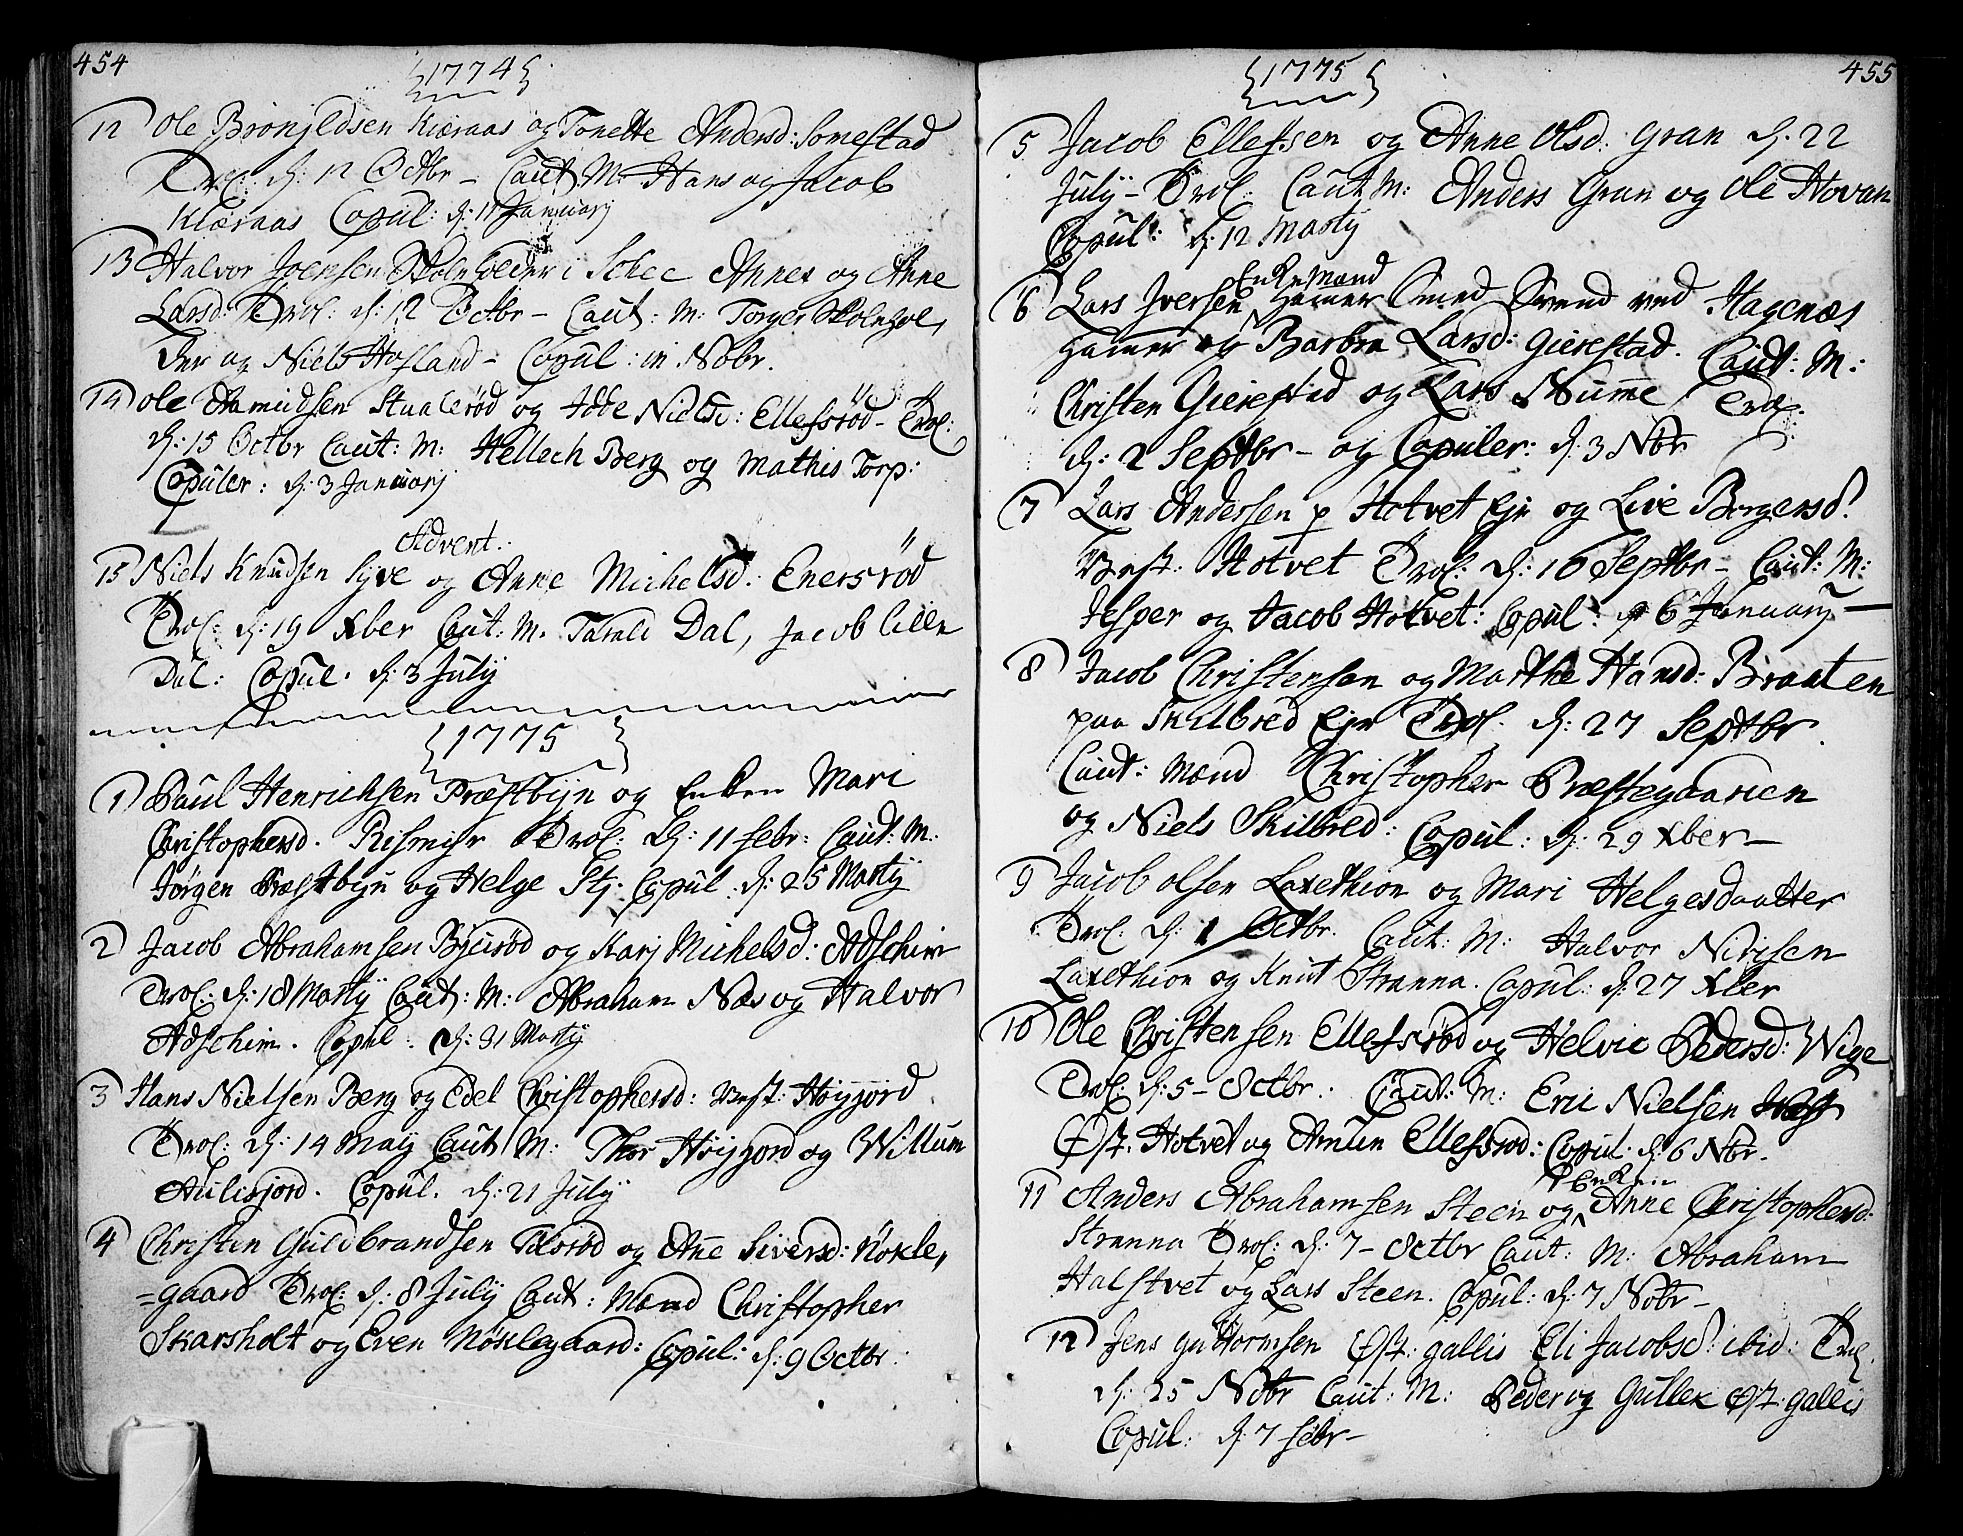 454
1774
12 Ole Brönjldsen Kiæraas og Tonette Andersd: Somestad
Trol: d: 12 Octbr – Caut. M: Hans og Jacob
Kiæraas Copul: d: 11 Januarj
13 Halvor Joensen Skoleholder i Schee Annex og Anne
Larsd: Trol: d: 12 Octbr – Caut: M: Torger Skolehol,
der og Niels Hofland – Copul: in Nobr.
14 Ole Amudsen Stualeröd og Idde Nielsd: Ellefsröd – Trol:
d: 15 Octbr Caut: M: Hellech Berg og Mathis Torp:
Copuler: d: 3 Januarj
Advent.
15 Niels Knudsen Syve og Anne Michelsd: Enersröd
Trol: d: 19 Xber Caut: M. Tarald Dal, Jacob lille
Dal: Copul. d: 3 July
1775
1 Paul Henrichsen Præstbyn og Enken Mari
Christophersd. Rismyr Trol: d: 11 Febr: Caut: M:
Jörgen Præstbyn og Helge Stj: Copul: d: 25 Martij
2 Jacob Abrahamsen Bjuröd og Karj Michelsd: Adschim
Trol: d: 18 Martij Caut: M: Abraham Næs og Halvor
Adschim. Copul: d: 31 Martij
3 Hans Nielsen Berg og Edel Christophersd: Vest: Höyjord
Trol: d: 14 Maij Caut M: Thor Höyjord og Willum
Aulisjord. Copul. d: 21 July
4 Christen Guldbrandsen Tilsröd og Anne Siversd: Nökle,
=gaard Trol: d: 8 July Caut: Mænd Christopher
Skarsholt og Even Nöklegaard: Copul: d: 9 Octbr:
455
1775
5 Jacob Ellefsen og Anne Olsd: Gran d: 22
July – Trol: Caut M: Anders Gran og Ole Hovan
Copul: d: 12 Martij
Enke Mand
6 Lars Iversen Hamer Smed Svend ved Hagenæs
Hamer og Barbra Larsd: Gierestad. Caut: M:
Christen Gierestad og Lars Numme, Trol:
d: 2 Septbr – og Copuler: d: 3 Nobr
7 Lars Andersen p Hotvet Eje og Live Borgersd:
Vest: Hotvet Trol: d: 16 Septbr – Caut: M:
Jesper og Jacob Hotvet: Copul: d 6 January –
8 Jacob Christensen og Marthe Hansd: Braaten
paa Skilbred Eje Trol. d: 27 Septbr.
Caut: Mænd Christopher Præstegaarden
og Niels Skilbred: Copul: d: 29 Xber –
9 Jacob Olsen Laxethion og Mari Helgesdaatter
Trol: d: 1 Octbr. Caut: M: Halvor Nirisen
Laxethion og Knut Stranna. Copul: d: 27 Xber
10 Ole Christensen Ellefsröd og Helvie Pedersd: Wige
Trol: d: 5 – Octbr. Caut: M: Eric Nielsen
Öst: Hotvet og Amun Ellefsröd: Copul: d: 6 Nobr.
Enken
11 Anders Abrahamsen Steen og Anne Christophersd:
Stranna Trol: d: 7 – Octbr Caut: M: Abraham
Halstvet og Lars Steen. Copul: d: 7 Nobr –
12 Jens Guttormsen Öst: Gallis Eli Jacobsd: ibid: Trol.
d: 25 Nobr Caut: M: Peder og Gullek Öst: Gallis
Copul: d: 7 Febr –